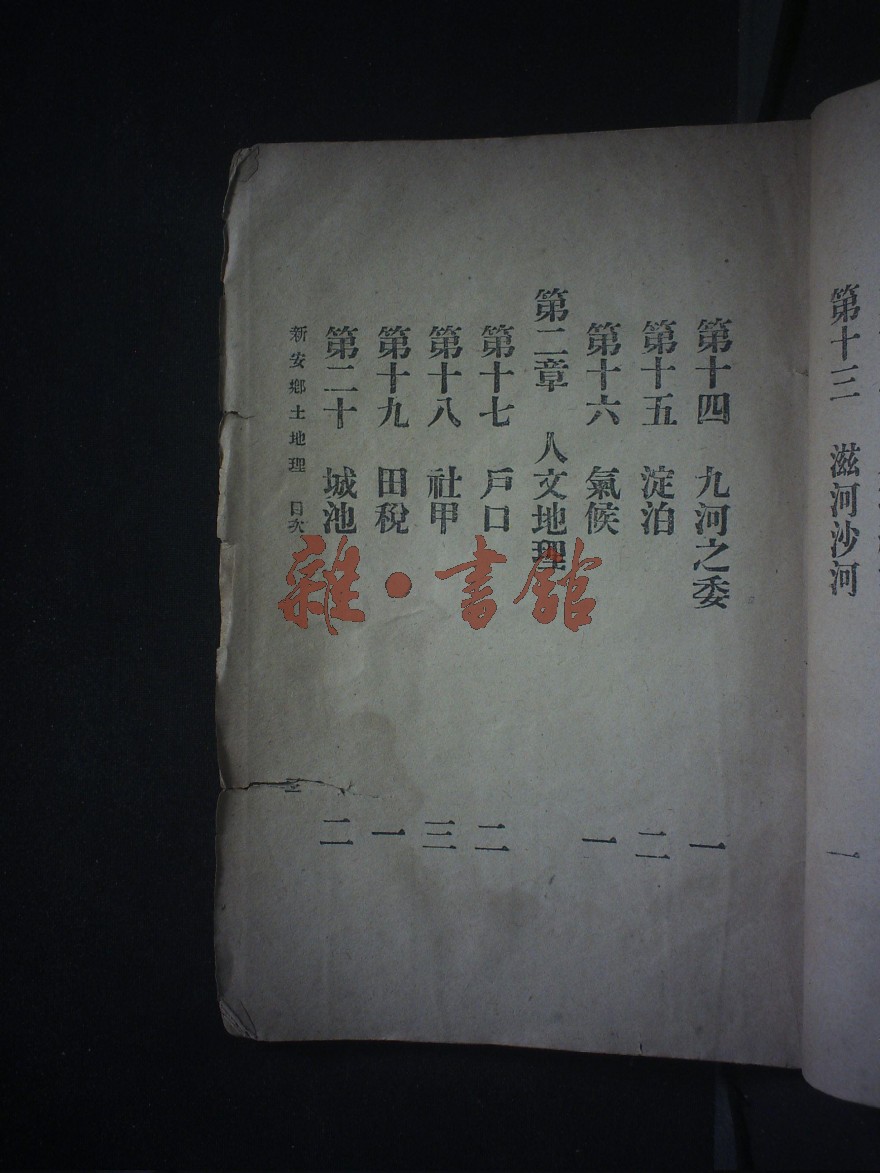 第十三 滋河沙河 一
第十四 九河之委 一
第十五 淀泊 二
第十六 氣候 一
第二章 人文地理
第十七 戶口 二
第十八 社甲 三
第十九 田稅 一
第二十 城池 二
新安鄉土地理 目次
雜·書館